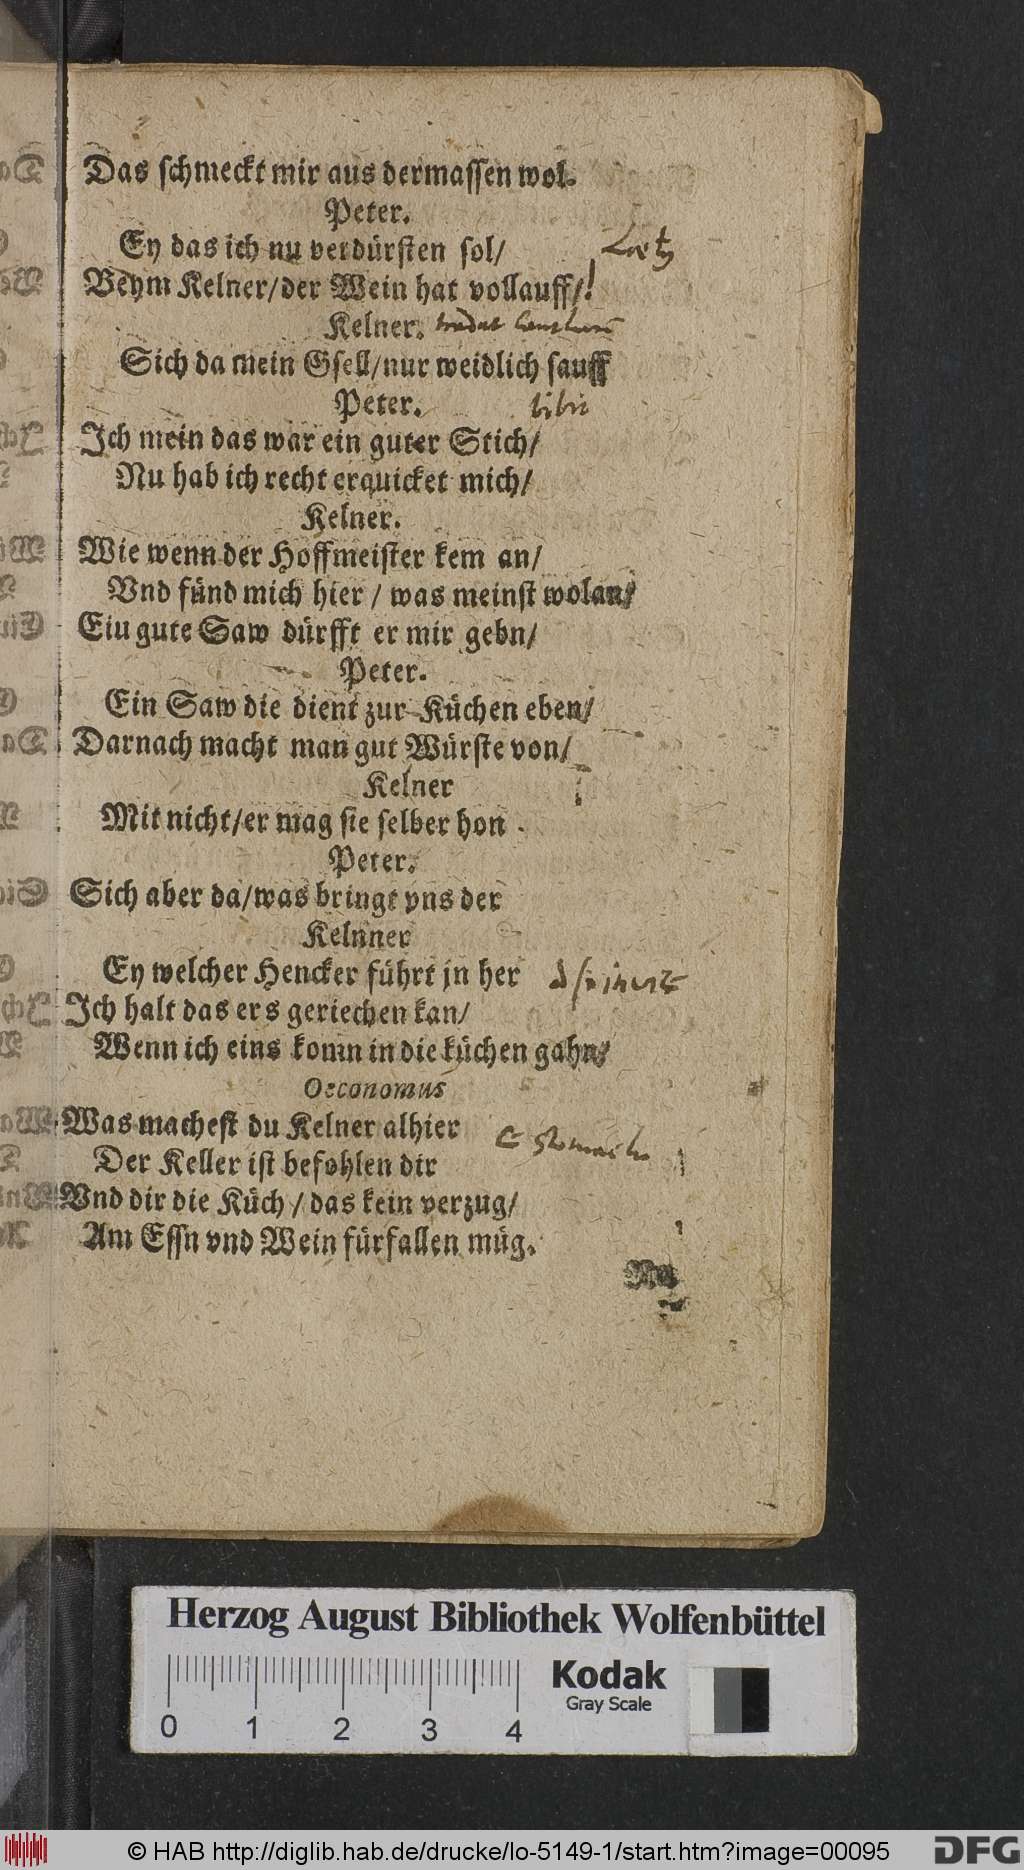 Das schmeckt mir aus dermassen wol.
Peter.
Ey das ich nu verdürsten sol/
Beym Kelner/der Wein hat vollauff/!
Kelner.
Sich da mein Gsell/nur weidlich sauff
Peter. bibit
Ich mein das war ein guter Stich/
Nu hab ich recht erquicket mich/
Kelner.
Wie wenn der Hoffmeister kem an/
Vnd fünd mich hier / was meinst wolan/
Eiu gute Saw dürfft er mir gebn/
Peter.
Ein Saw die dient zur Küchen eben/
Darnach macht man gut Würste von/
Kelner
Mit nicht/er mag sie selber hon
Peter.
Sich aber da/was bringt vns der
Kelnner
Ey welcher Hencker führt jn her
Ich halt das ers geriechen kan/
Wenn ich eins komn in die küchen gahn/
Oeconomus
Was machest du Kelner alhier
Der Keller ist befohlen dir
Vnd dir die Küch / das kein verzug/
Am Essn vnd Wein fürfallen müg.
Herzog August Bibliothek Wolfenbüttel
Kodak
Gray Scale
0 1 2 3 4
© HAB http://diglib.hab.de/drucke/lo-5149-1/start.htm?image=00095
DFG